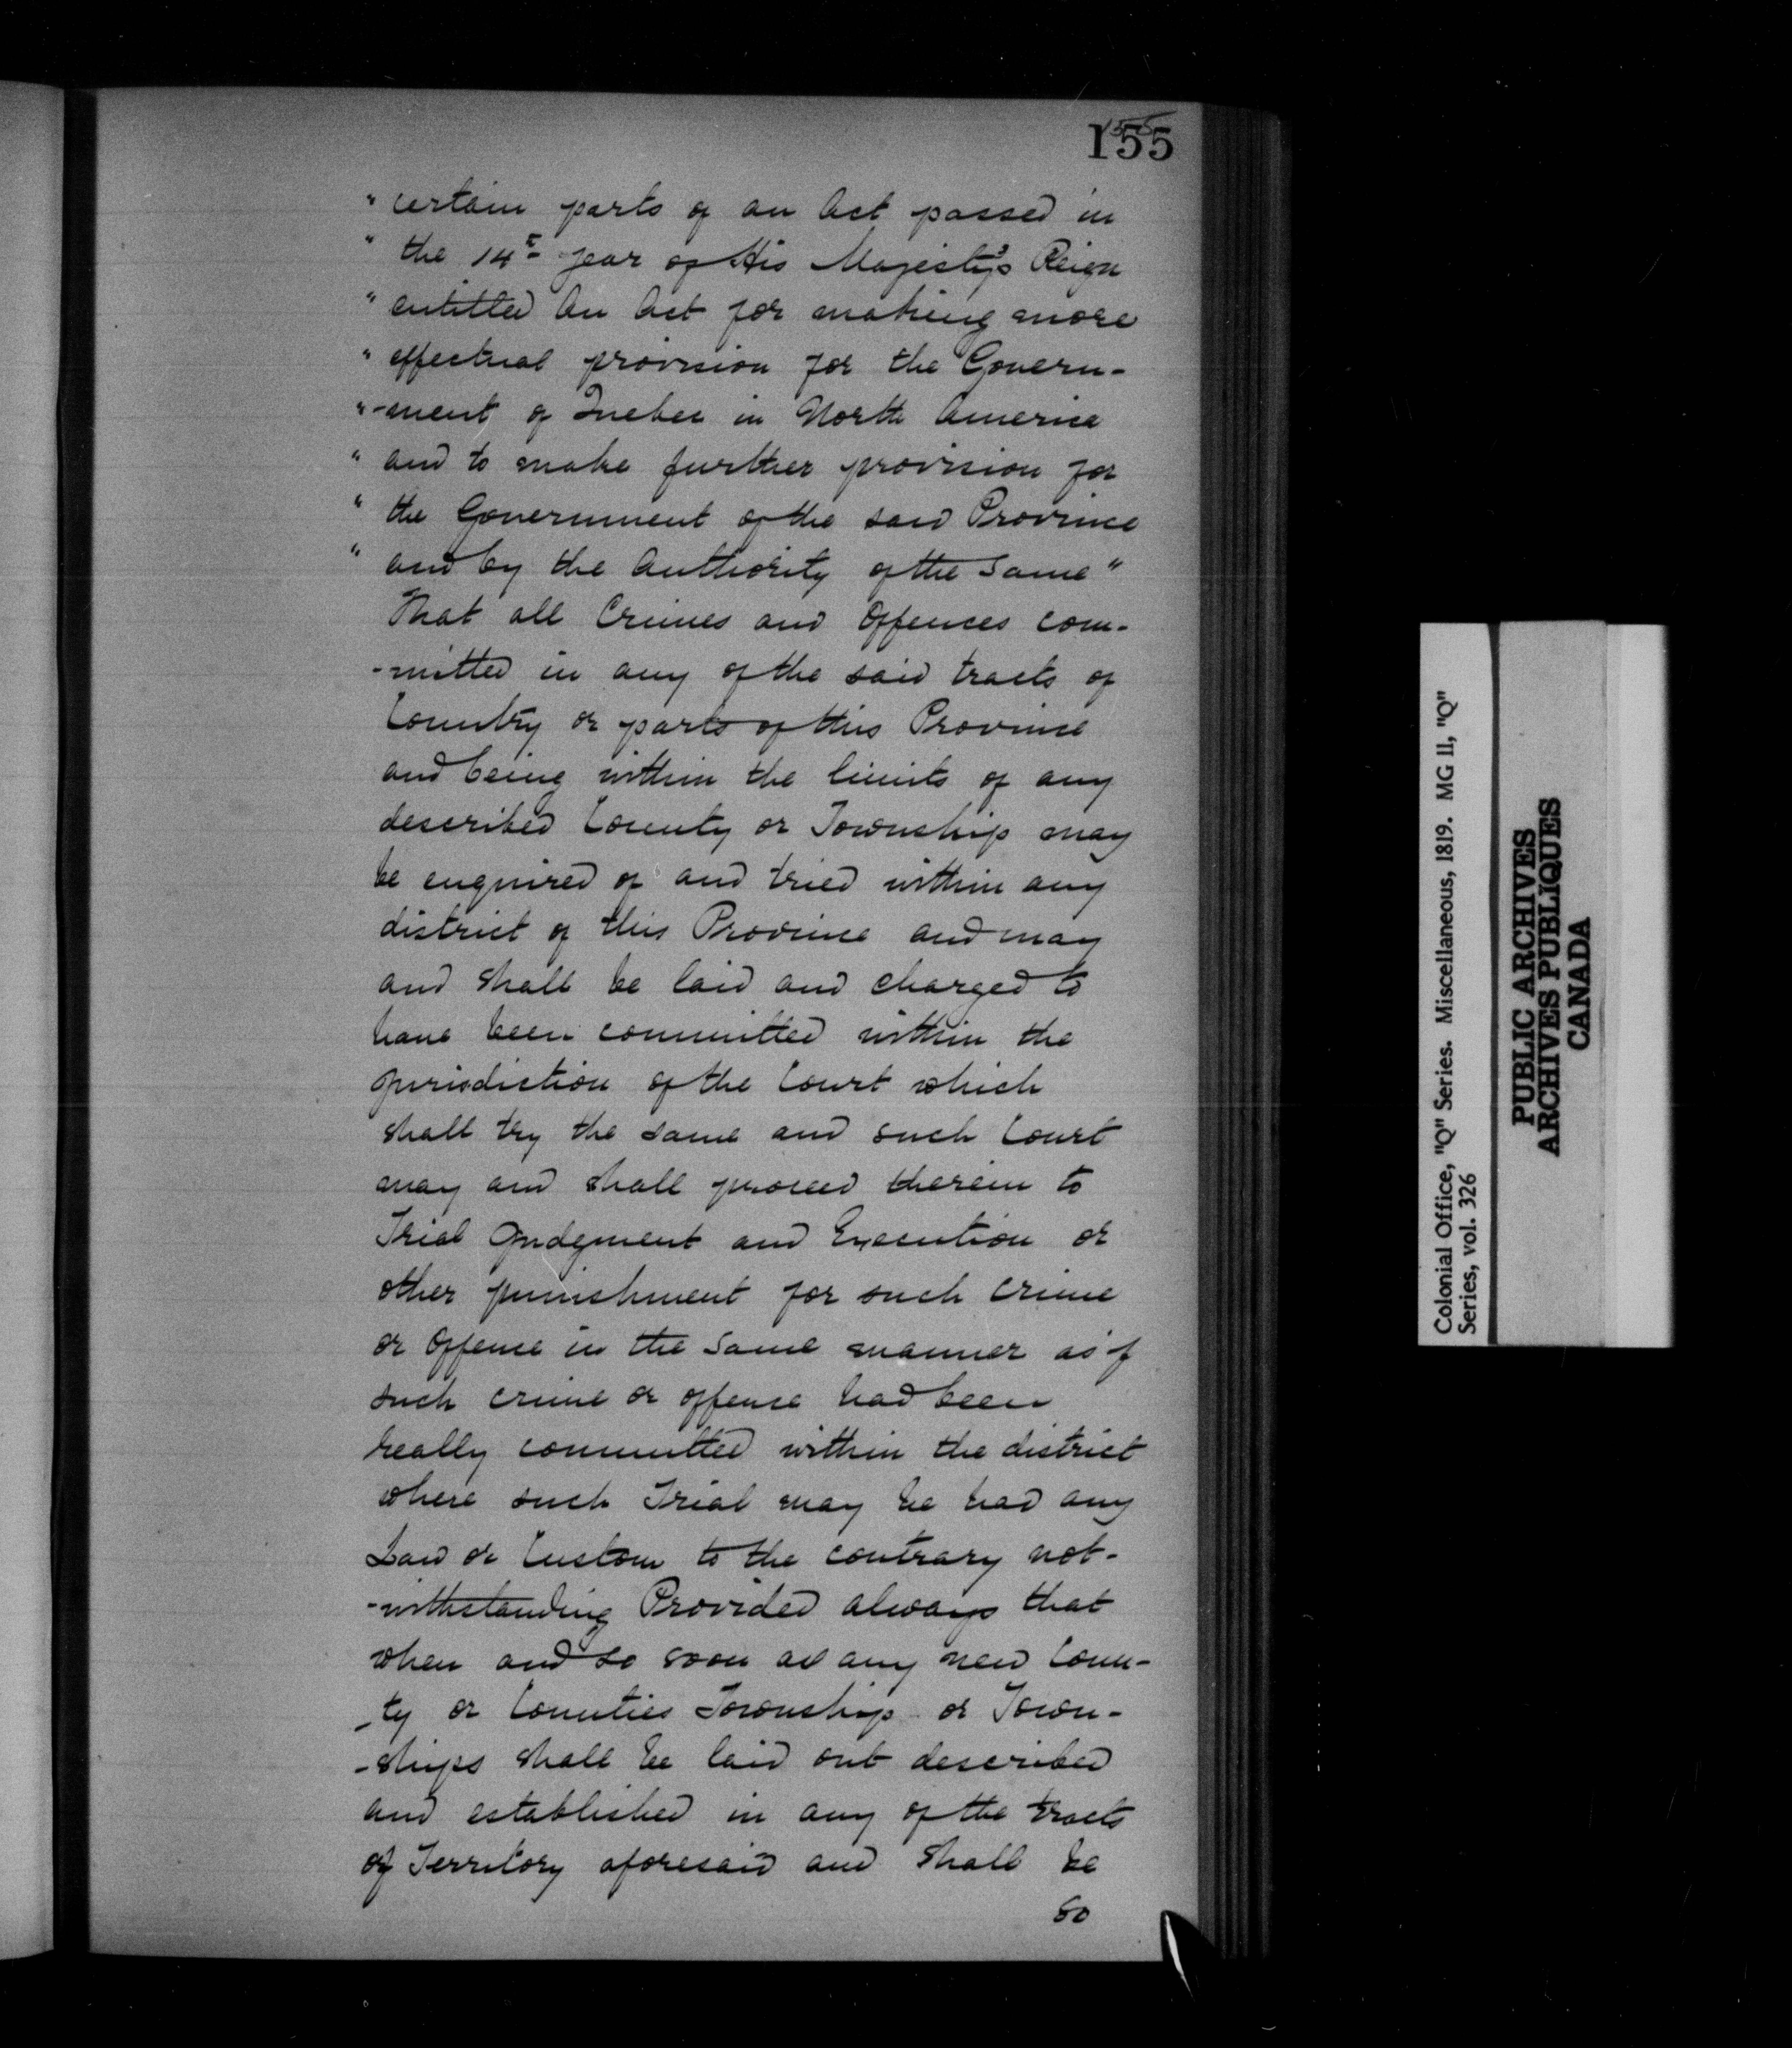 155
155
" certain parts of an Act passed in
" the 14th year of His Majesty's Reign
" entitled An Act for making more
" effectual provision for the Govern-
"-ment of Quebec in North America
" and to make further provision for
" the Government of the said Province
" and by the Authority of the Same"
That all Crimes and Offences com-
-mitted in any of the said tracts of
Country or parts of this Province
and being within the limits of any
described County or Township may
be enquired of and tried within any
district of this Province and may
and shall be laid and charged to
have been committed within the
jurisdiction of the Court which
shall try the same and such Court
may and shall proceed therein to
Trial Judgment and Execution or
other punishment for such crime
or Offence in the Same manner as if
such crime or offence had been
really committed within the district
where such Trial may be had any
Law or Custom to the contrary not-
-withstanding Provided always that
when and so soon as any new Coun-
-ty or Counties Township or Town-
-ships shall be laid out described
and established in any of the tracts
of Territory aforesaid and shall be
so
Colonial Office, "Q" Series. Miscellaneous, 1819. MG 11, "Q"
Series, vol. 326
PUBLIC ARCHIVES
ARCHIVES PUBLIQUES
CANADA